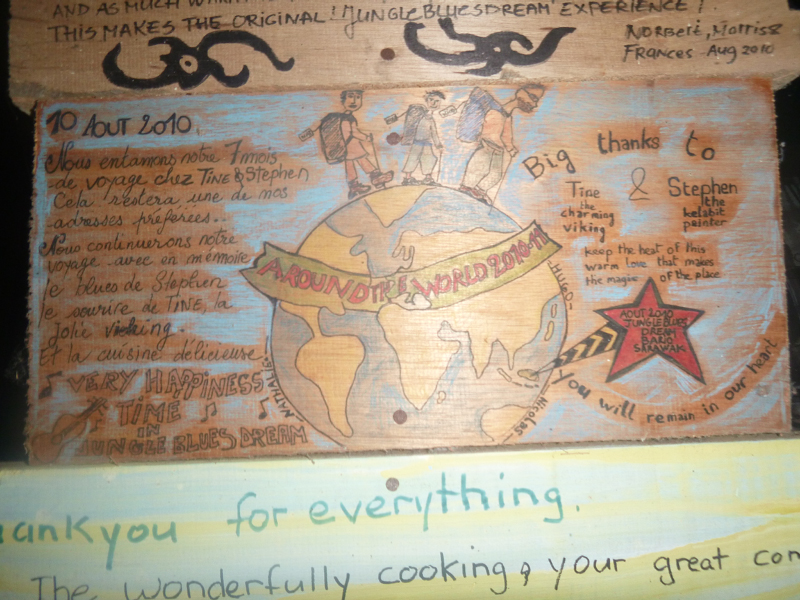 AND AS MUCH
THIS MAKES THE ORIGINAL! 'JUNGLEBLUESDREAM' EXPERIENCE!
Norbert, Morris &
Frances Aug 2010
10 Aout 2010.
Nous entamons notre 7 mois
de voyage chez Tine & Stephen
Cela restera une de nos
adresses préférées..
Nous continuerons notre
voyage avec en mémoire
le blues de Stephen
le sourire de Tine, la
jolie viking.
Et la cuisine délicieuse.
VERY HAPPINESS
TIME
IN
JUNGLE BLUES DREAM
AROUND THE WORLD 2010-11
HUGO
MATHIAS
Nicolas
Big thanks to
Tine & Stephen
the charming viking
the kelabit painter
keep the beat of this
warm love that makes
the magic of the place
AOUT 2010
JUNGLE BLUES
DREAM
BARIO
SARAWAK
You will remain in our heart
hankyou for everything.
The wonderfully cooking, your great con